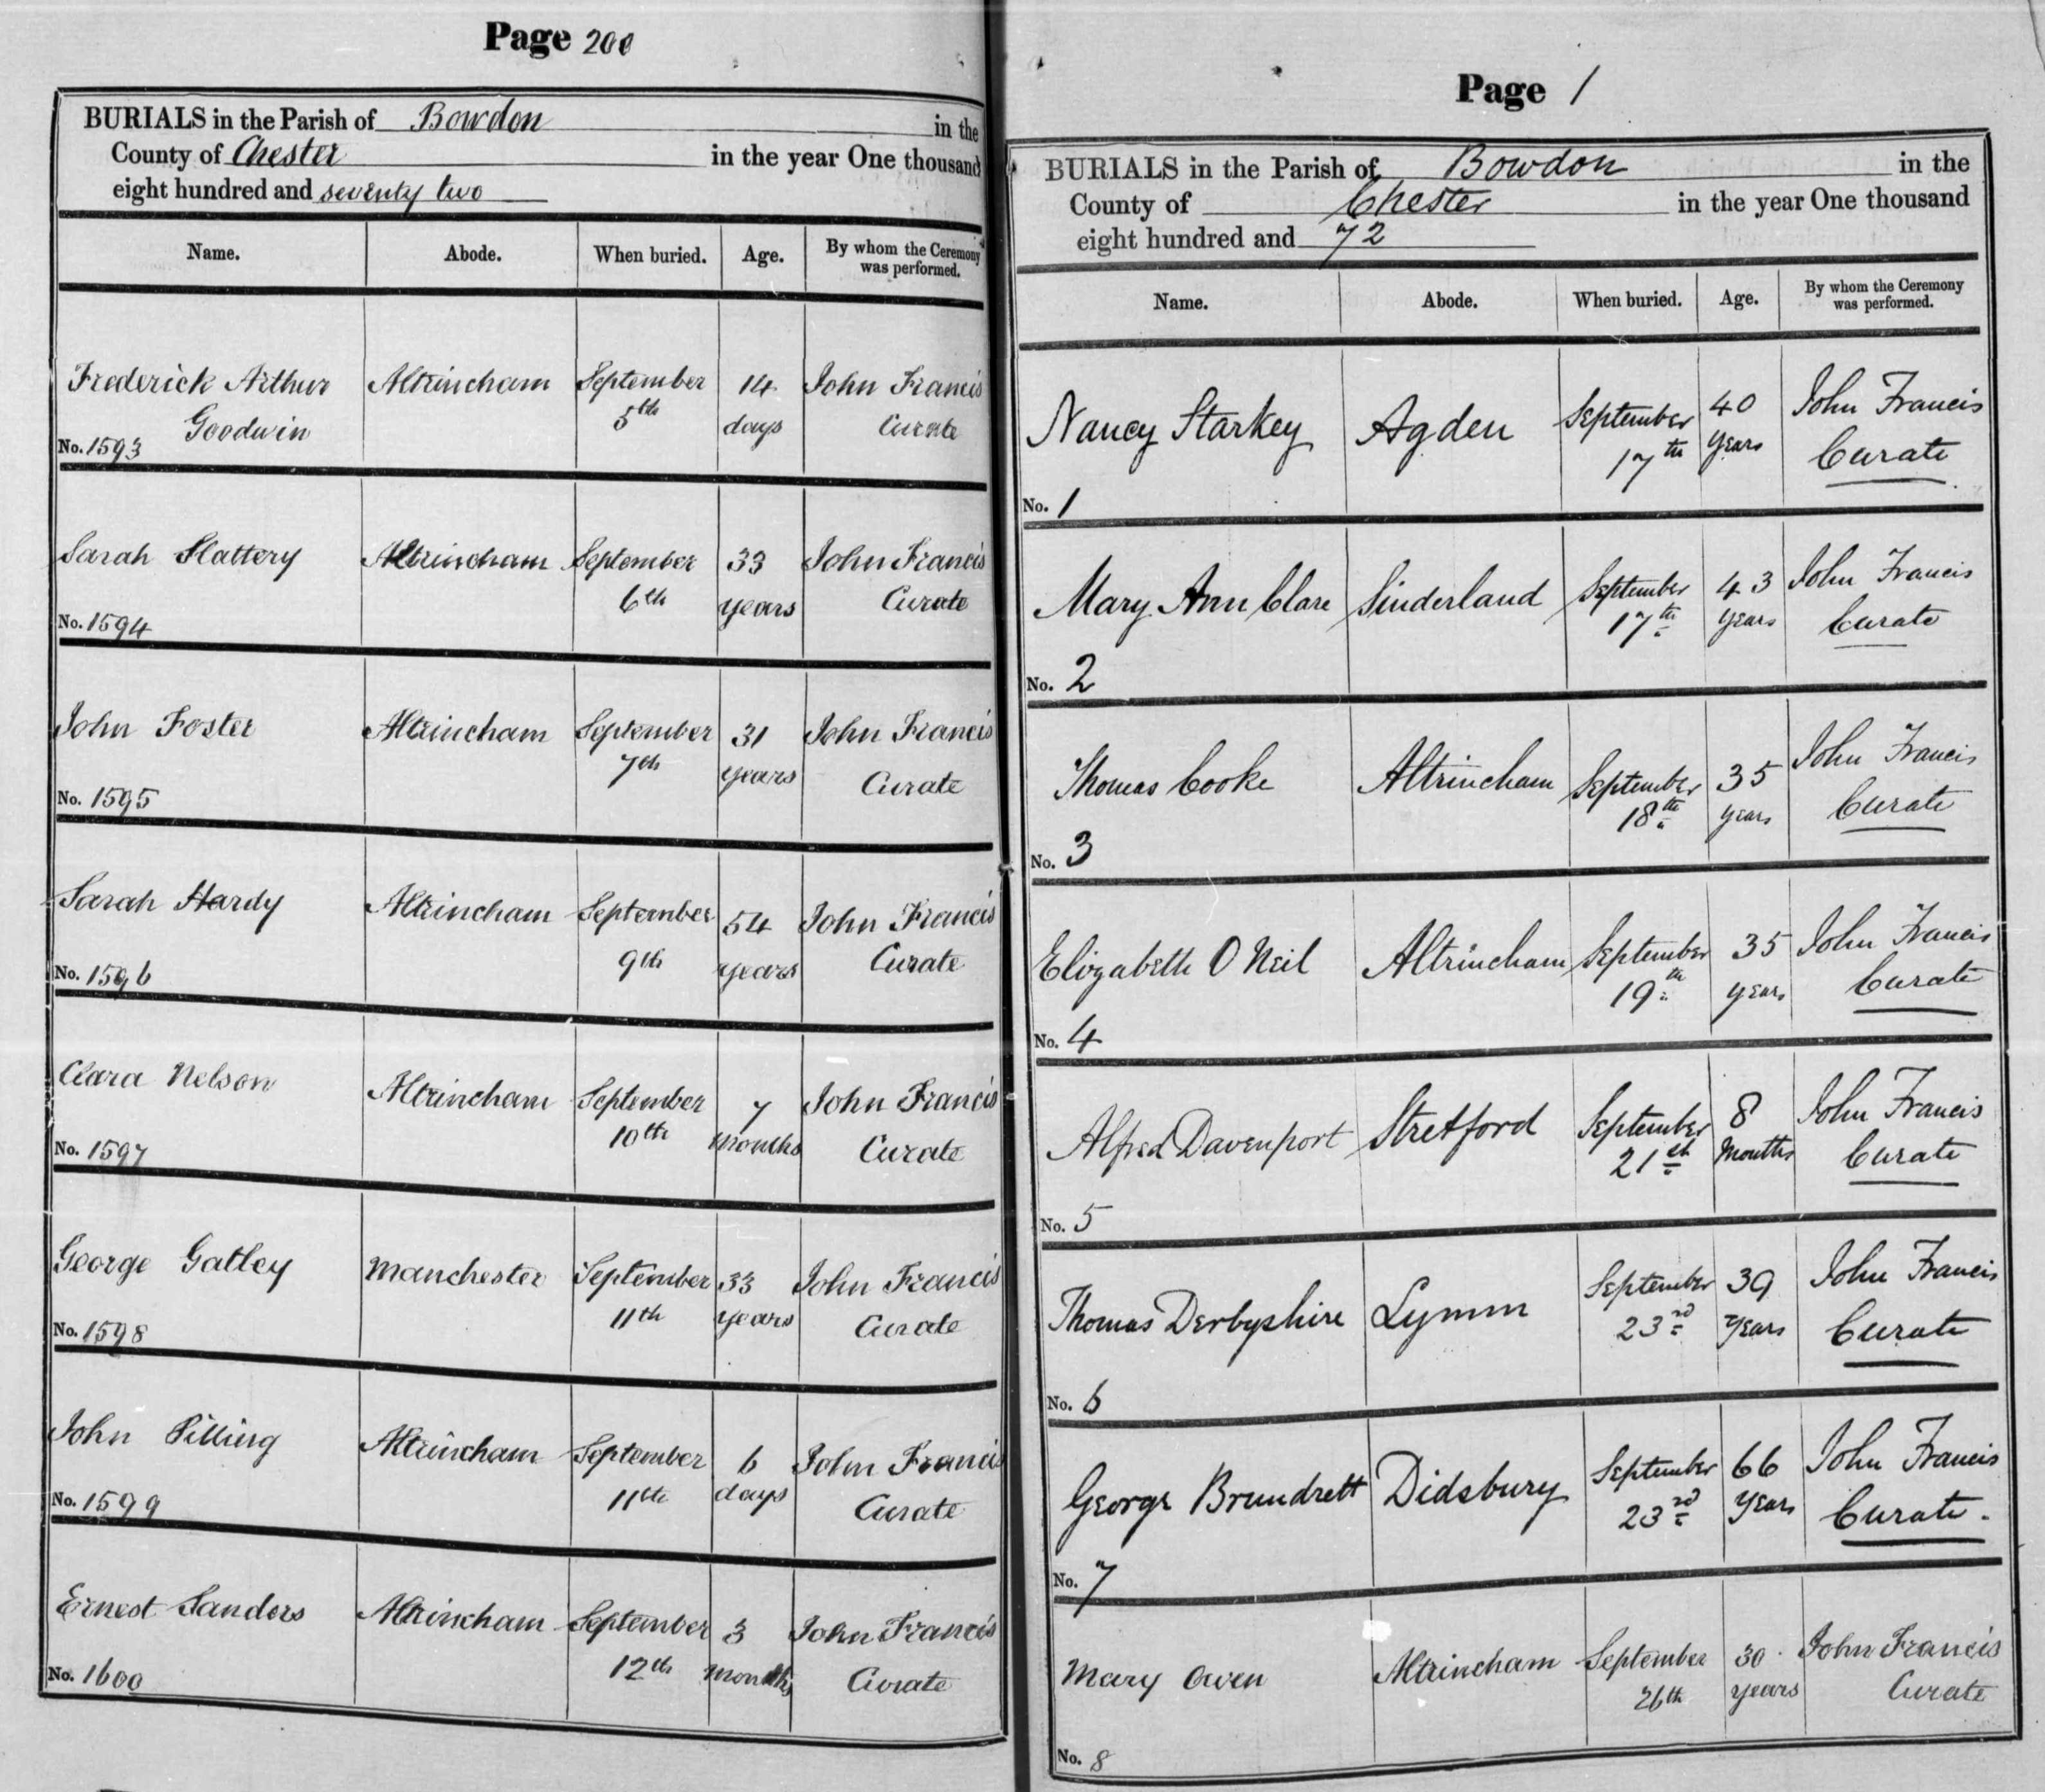 Page 200
BURIALS in the Parish of Bowdon in the
County of Chester in the year One thousand
eight hundred and seventy two
Name. Abode. When buried. Age. By whom the Ceremony was performed.
Frederick Arthur Altrincham September 14 John Francis
Goodwin 5th days Curate
No. 1593
Sarah Slattery Altrincham September 33 John Francis
6th years Curate
No. 1594
John Foster Altrincham September 31 John Francis
7th years Curate
No. 1595
Sarah Hardy Altrincham September 54 John Francis
9th years Curate
No. 1596
Clara Nelson Altrincham September 7 John Francis
10th months Curate
No. 1597
George Gatley Manchester September 33 John Francis
11th years Curate
No. 1598
John Pilling Altrincham September 6 John Francis
11th days Curate
No. 1599
Ernest Sanders Altrincham September 3 John Francis
12th months Curate
No. 1600
Page 1
BURIALS in the Parish of Bowdon in the
County of Chester in the year One thousand
eight hundred and 72
Name. Abode. When buried. Age. By whom the Ceremony was performed.
Nancy Starkey Agden September 40 John Francis
17th years Curate
No. 1
Mary Ann Clare Sinderland September 43 John Francis
17th years Curate
No. 2
Thomas Cooke Altrincham September 35 John Francis
18th years Curate
No. 3
Elizabeth O Neil Altrincham September 35 John Francis
19th years Curate
No. 4
Alfred Davenport Stretford September 8 John Francis
21st Months Curate
No. 5
Thomas Derbyshire Lymm September 39 John Francis
23rd Years Curate
No. 6
George Brundrett Didsbury September 66 John Francis
23rd Years Curate.
No. 7
Mary Owen Altrincham September 30 John Francis
26th years Curate
No. 8